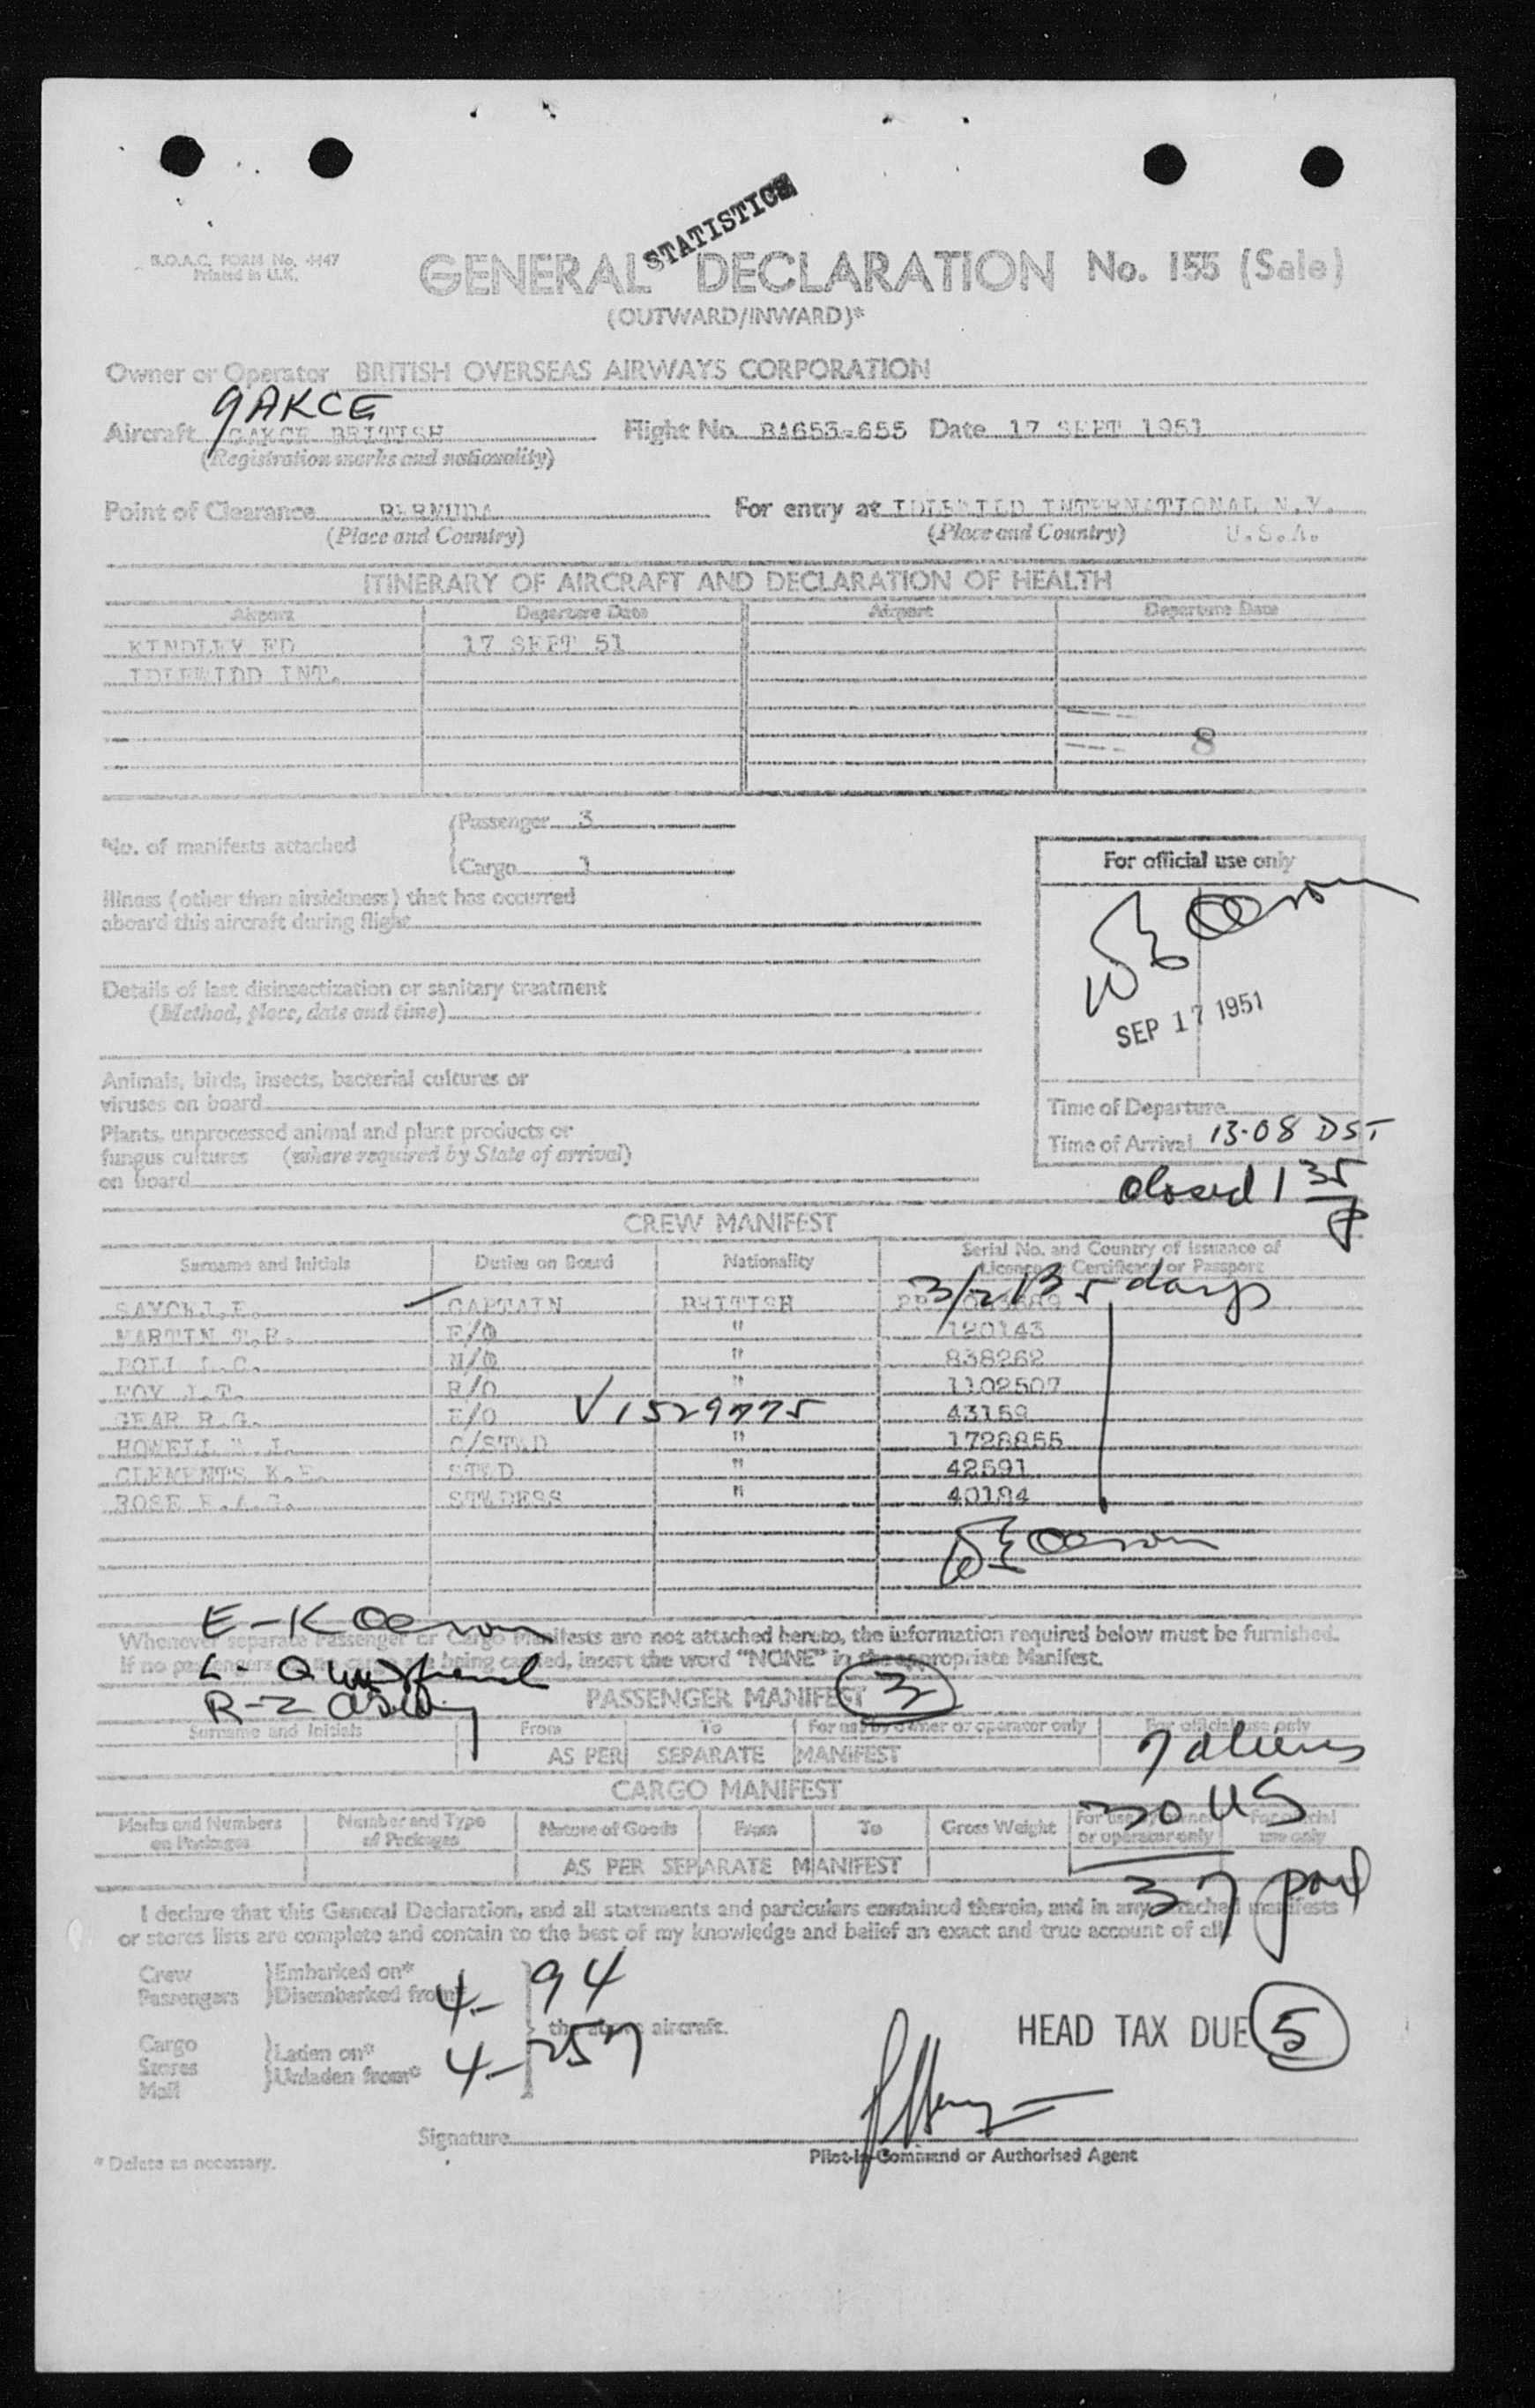 STATISTICS
B.O.A.C. FORM No. 4447
Printed in U.K.
GENERAL DECLARATION No. 155 (Sale)
(OUTWARD/INWARD)*
Owner or Operator BRITISH OVERSEAS AIRWAYS CORPORATION
GAKCE
Aircraft GAKCE BRITISH Flight No. BA653-655 Date 17 SEPT 1951
(Registration marks and nationality)
Point of Clearance BERMUDA For entry at IDLEWILD INTERNATIONAL N.Y.
(Place and Country) (Place and Country) U.S.A.
ITINERARY OF AIRCRAFT AND DECLARATION OF HEALTH
Airport Departure Date Airport Departure Date
KINDLEY FD 17 SEPT 51
IDLEWIDD INT.
8
*No. of manifests attached
Passenger 3
Cargo 1
Illness (other than airsickness) that has occurred
aboard this aircraft during flight
Details of last disinsectization or sanitary treatment
(Method, place, date and time)
Animals, birds, insects, bacterial cultures or
viruses on board
Plants, unprocessed animal and plant products or
fungus cultures (where required by State of arrival)
on board
For official use only
SEP 17 1951
Time of Departure
Time of Arrival 13-08 DST
closed 1 35
P
CREW MANIFEST
Surname and Initials Duties on Board Nationality Serial No. and Country of Issuance of
Licence or Certificate or Passport
3/2 13 5 days
CAPTAIN BRITISH PP
MARTIN T.R. F/O " 120143
POLL L.C. N/O " 838262
FOY J.T. R/O " 1102507
GEAR R.G. E/O V1529775 43159
HOWELL W.J. C/STWD " 1728855
CLEMENTS K.E. STWD " 42591
ROSE E.A.G. STWDESS " 40184
E-K
Whenever separate Passenger or Cargo Manifests are not attached hereto, the information required below must be furnished.
If no passengers being carried, insert the word "NONE" in the appropriate Manifest.
L-
R-Z
PASSENGER MANIFEST 3
Surname and Initials From To For use by owner or operator only For official use only
AS PER SEPARATE MANIFEST
7 aliens
CARGO MANIFEST
30 US
Marks and Numbers on Packages Number and Type of Packages Nature of Goods From To Gross Weight For use by owner or operator only For official use only
AS PER SEPARATE MANIFEST
37 paid
I declare that this General Declaration, and all statements and particulars contained therein, and in any attached manifests
or stores lists are complete and contain to the best of my knowledge and belief an exact and true account of all
Crew Embarked on*
Passengers Disembarked from*
4-94
the above aircraft.
Cargo
Stores Laden on*
Mail Unladen from*
4-257
HEAD TAX DUE 5
Signature
Pilot-in-Command or Authorised Agent
* Delete as necessary.